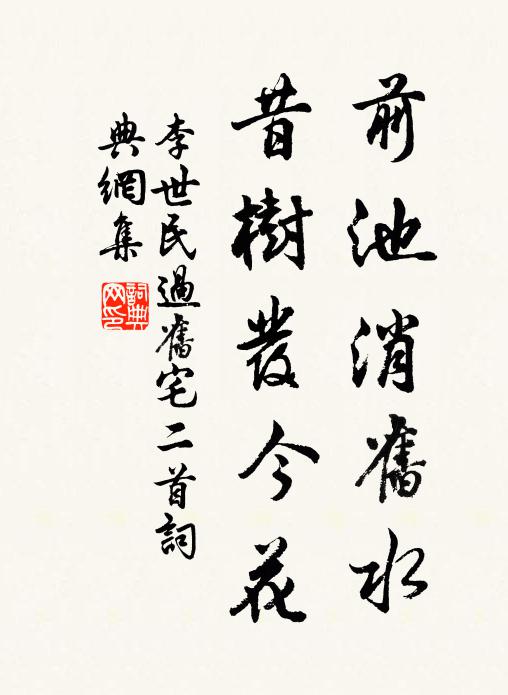 前池消舊水
昔樹發今花
李世民過舊宅二首詞
典網集
詞典网印